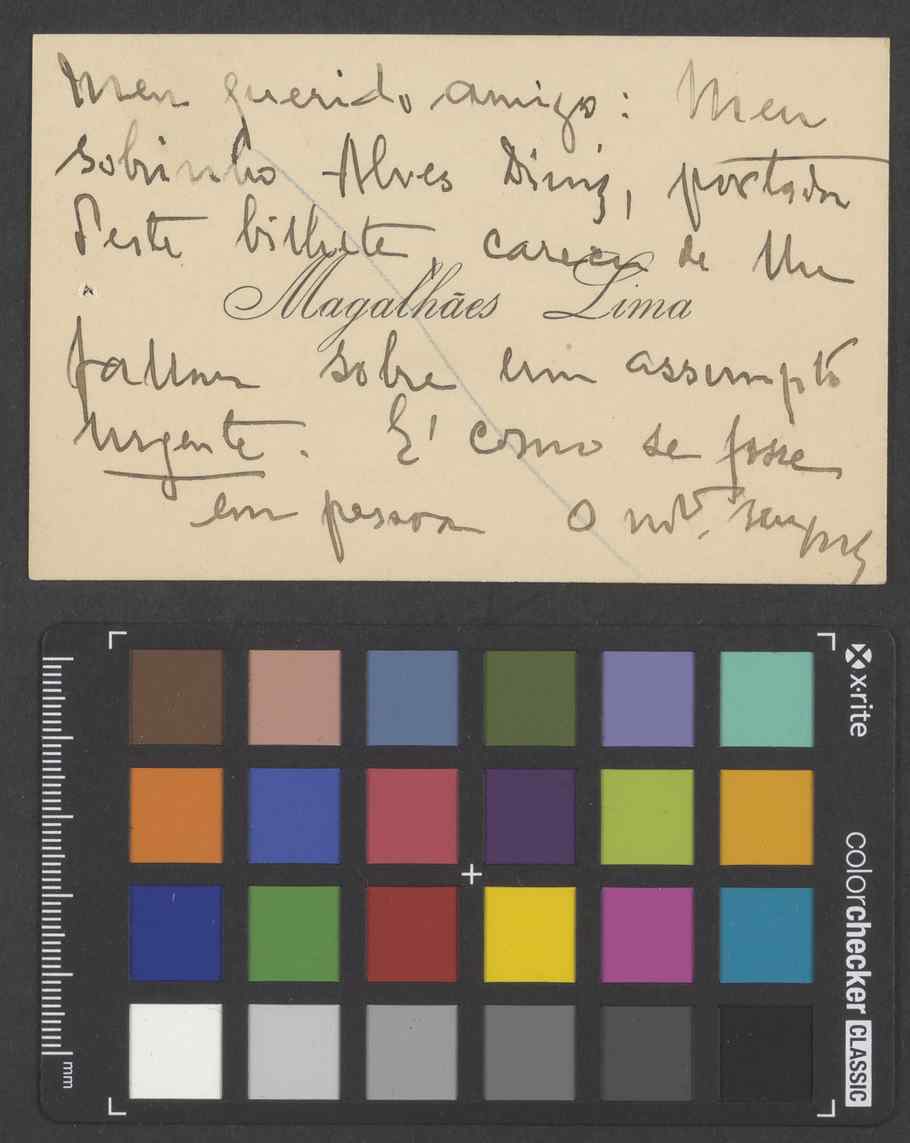 Meu querido amigo: Meu
sobrinho Alves Diniz, portador
deste bilhete, carece de lhe
Magalhães Lima
fallar sobre um assumpto
urgente. É como se fosse
em pessoa O sempre
x·rite
colorchecker CLASSIC
mm